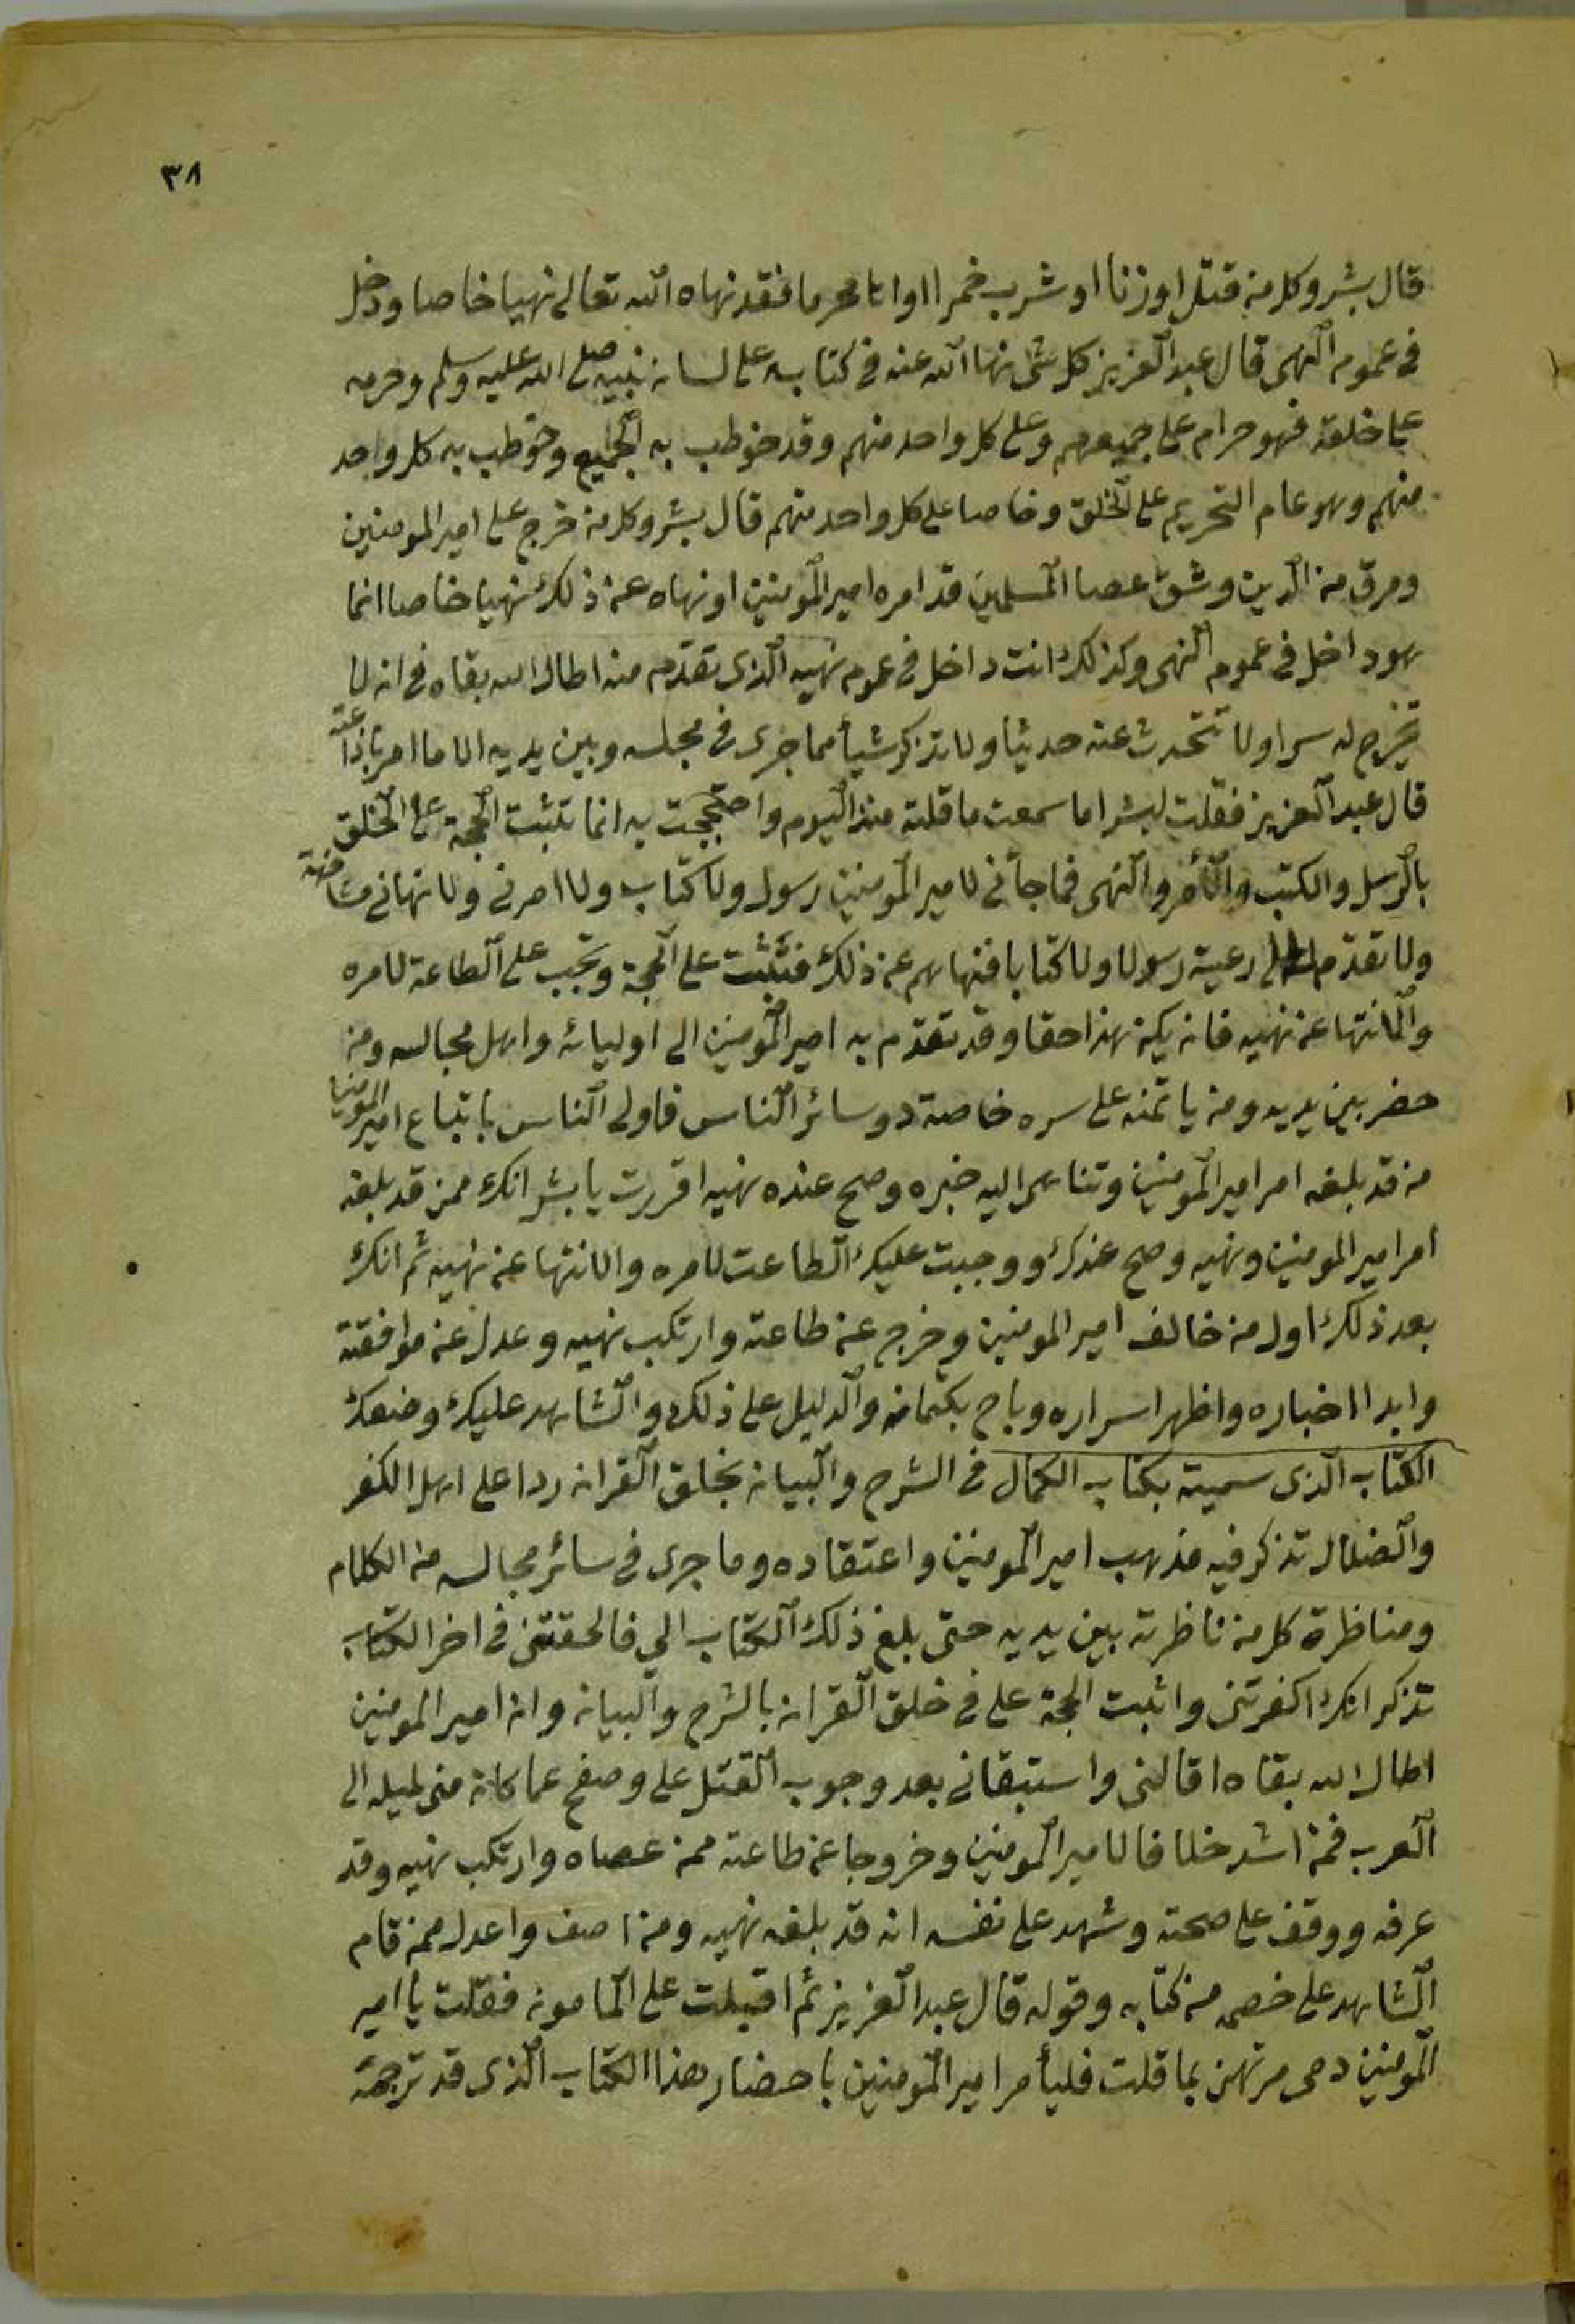 ٣٨
قال بشر وكل من قتل او زنا او شرب خمرا او اتا محرما فقد نهاه الله تعالى نهيا خاصا ودخل
فى عموم النهى قال عبد العزيز كل شى نها الله عنه فى كتابه على لسان نبيه صلى الله عليه وسلم وحرمه
على خلقه فهو حرام على جميعهم وعلى كل واحد منهم وقد خوطب به الجميع وخوطب به كل واحد
منهم وهو عام التحريم على الخلق وخاصا على كل واحد منهم قال بشر وكل من خرج على امير المومنين
ومرق من الدين وشق عصا المسلمين قد امره امير المومنين او نهاه عن ذلك نهيا خاصا انما
هو داخل فى عموم النهى وكذلك انت داخل فى عموم نهيه الذى تقدم منه اطال الله بقاه فى ان لا
تخرج له سرا ولا تتحدث عنه حديثا ولا تذكر شيأ مما جرى فى مجلسه وبين يديه الا ما امر باذاعته
قال عبد العزيز فقلت لبشر اما سمعت ما قلته منذ اليوم واحتججت به انما تثبت الحجة على الخلق
بالرسل والكتب والأمر والنهى فما جأنى لامير المومنين رسول ولا كتاب ولا امرنى ولا نهانى مشافهة
ولا تقدم الى رعيته رسولا ولا كتابا فنهاهم عن ذلك فتثبت على الحجة وتجب على الطاعة لامره
والانتها عن نهيه فان يكن هذا حقا وقد تقدم به امير المومنين الى اوليائه واهل مجالسه ومن
حضر بين يديه ومن ياتمنه على سره خاصة دو سائر الناس فاولى الناس باتباع امير المومنين
من قد بلغه امر امير المومنين وتناهى اليه خبره وصح عنده نهيه اقررت يا بشر انك ممن قد بلغه
امر امير المومنين ونهيه وصح عندك ووجبت عليك الطاعت لامره والانتها عن نهيه ثم انك
بعد ذلك اول من خالف امير المومنين وخرج عن طاعته وارتكب نهيه وعدل عن موافقته
وابدا اخباره واظهر اسراره وباح بكتمانه والدليل على ذلك والشاهد عليك وضعك
الكتاب الذى سميته بكتاب الكمال فى الشرح والبيان بخلق القران ردا على اهل الكفر
والضلال تذكر فيه مذهب امير المومنين واعتقاده وما جرى فى سائر مجالسه من الكلام
ومناظرة كل من ناظرته بين يديه حتى بلغ ذلك الكتاب الي فالحقتنى فى اخر الكتاب
تذكر انك اكفرتنى واثبت الحجة على فى خلق القران بالشرح والبيان وان امير المومنين
اطال الله بقاه اقالنى واستبقانى بعد وجوب القتل على وصفح عما كان منى لميله الى
العرب فمن اشد خلافا لامير المومنين وخروجا عن طاعته ممن عصاه وارتكب نهيه وقد
عرفه ووقف على صحته وشهد على نفسه انه قد بلغه نهيه ومن اصف واعدل ممن قام
الشاهد على خصمه من كتابه وقوله قال عبد العزيز ثم اقبلت على المامون فقلت يا امير
المومنين دمى مرتهن بما قلت فليأمر امير المومنين باحضار هذا الكتاب الذى قد ترجمته